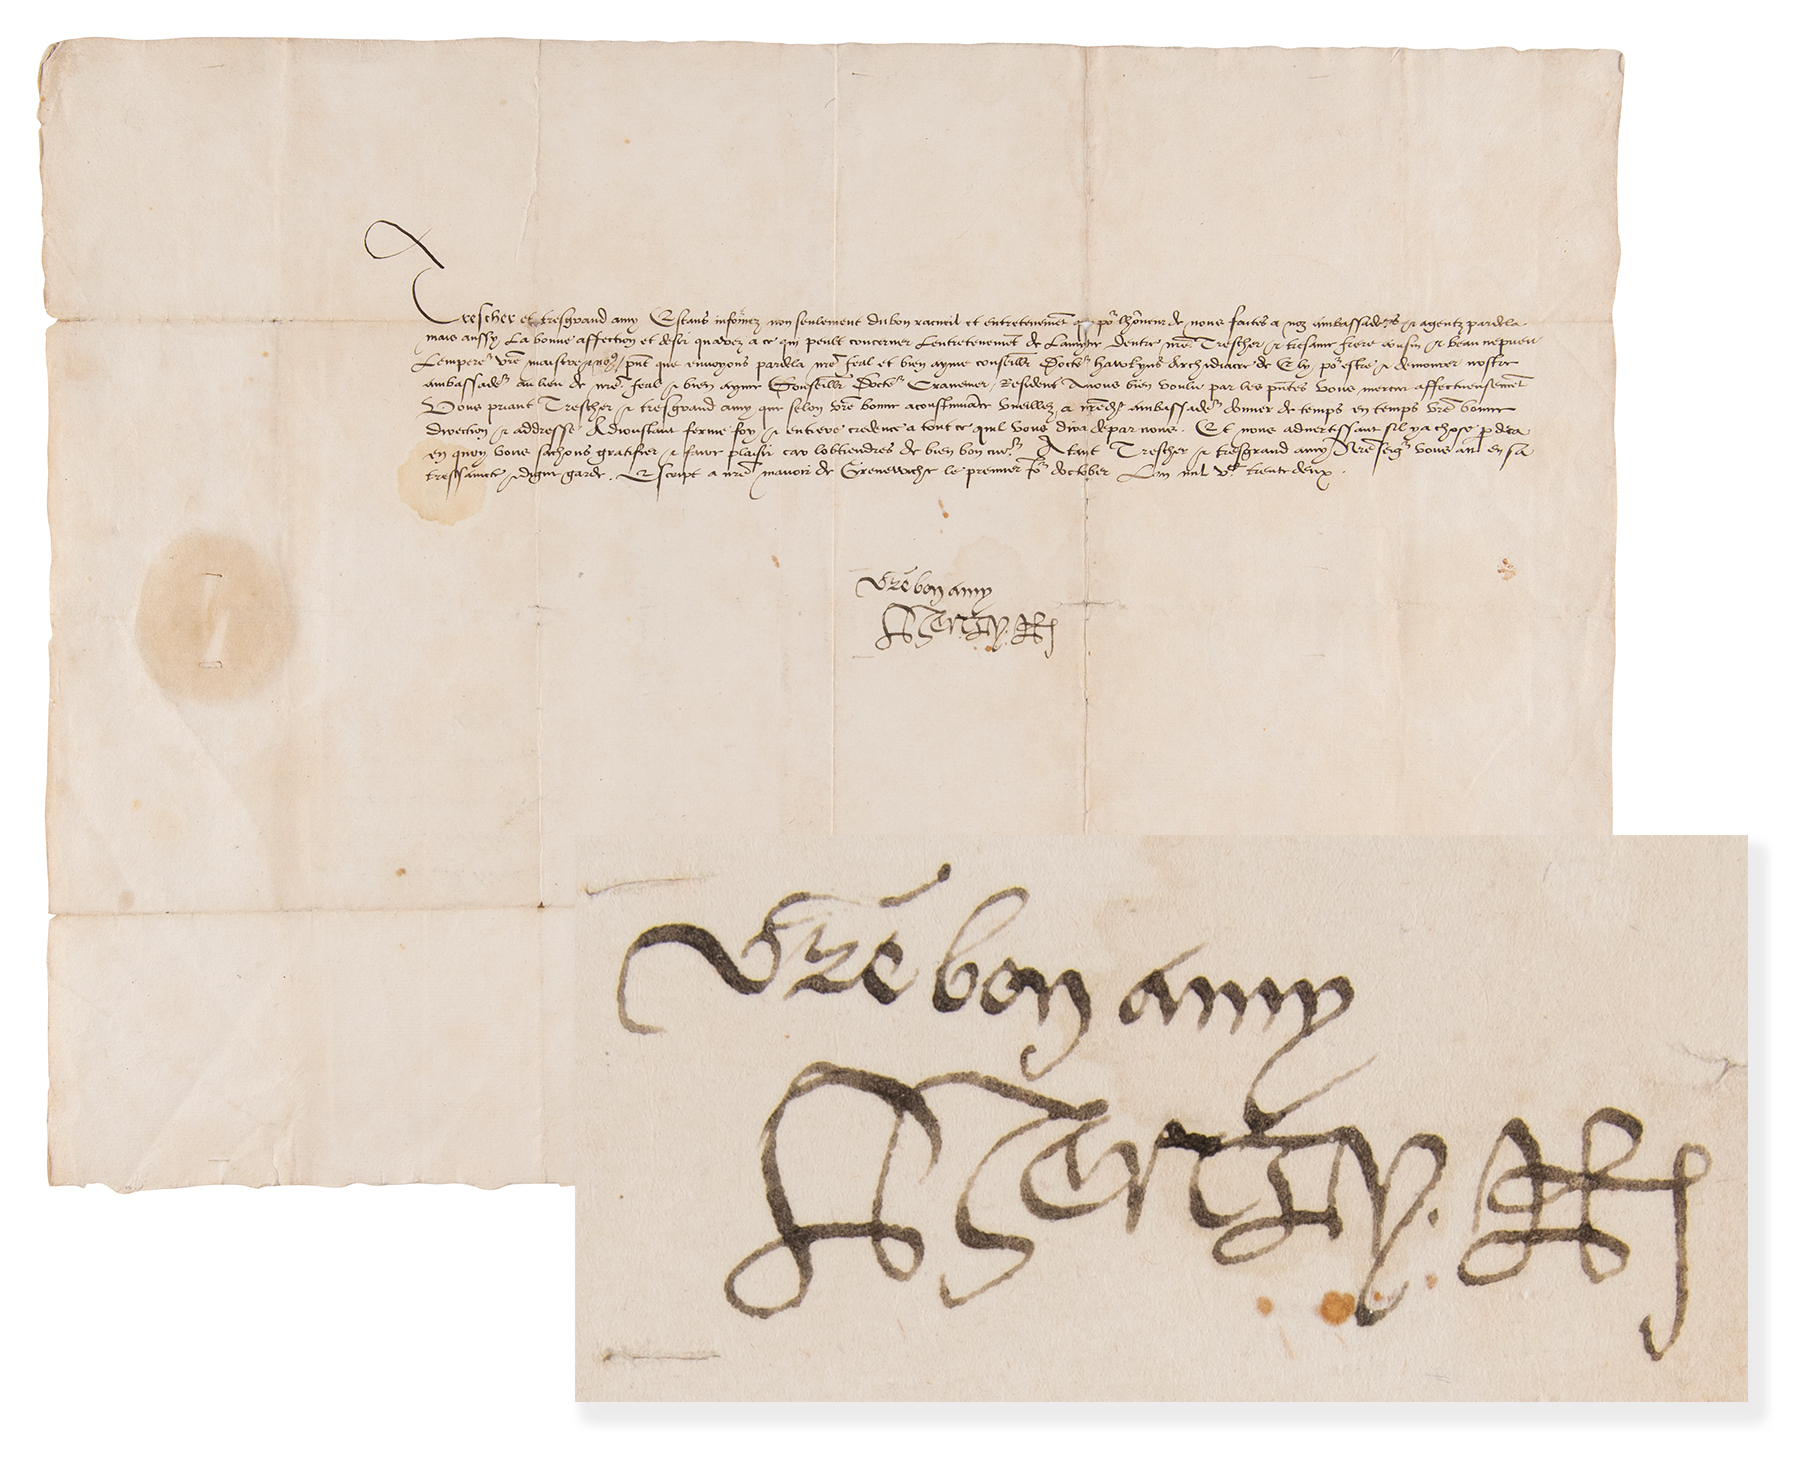 Trescher et tresgrand amy Estans informez non seulement du bon racueil et entretenement que po^r lhonneur de nous faites a noz ambassade^rs et agentz pardela
mais aussy La bonne affection et desir quavez a ce qui peult concerner Lentretenement de Lamytie dentre nre Trescher et tresame frere cousin et beau nepveu
Lempere^r vre maistre et nous / pnt que envoyons pardela nre feal et bien ayme conseiller Docte^r Hawkyns Archidiacre de Ely po^r estre et demourer nostre
ambassade^r au lieu de nre feal et bien ayme Conseiller Docte^r Cranemer / Resident Avons bien voulu par les pntes vous mercier affectueusement
Vous priant Trescher et tresgrand amy que selon vre bonne acoustumance vueillez a nredict ambassade^r donner de temps en temps vre bonne
direction et addresse Adioustant ferme foy et entiere credence a tout ce quil vous dira depar nous. Et nous advertissant sil y a chose p dela
en quoy vous sachons gratifier et faire plaisir car lobtiendres de bien bon cue^r. Atant Trescher et tresgrand amy nre seig^r vous ait en sa
tressaincte et digne garde. Escript a nre manoir de Grenewiche le premier jo^r doctober Lan mil v^c trente deux.
Vre bon amy
Henry. R
Vre bon amy
Henry. R